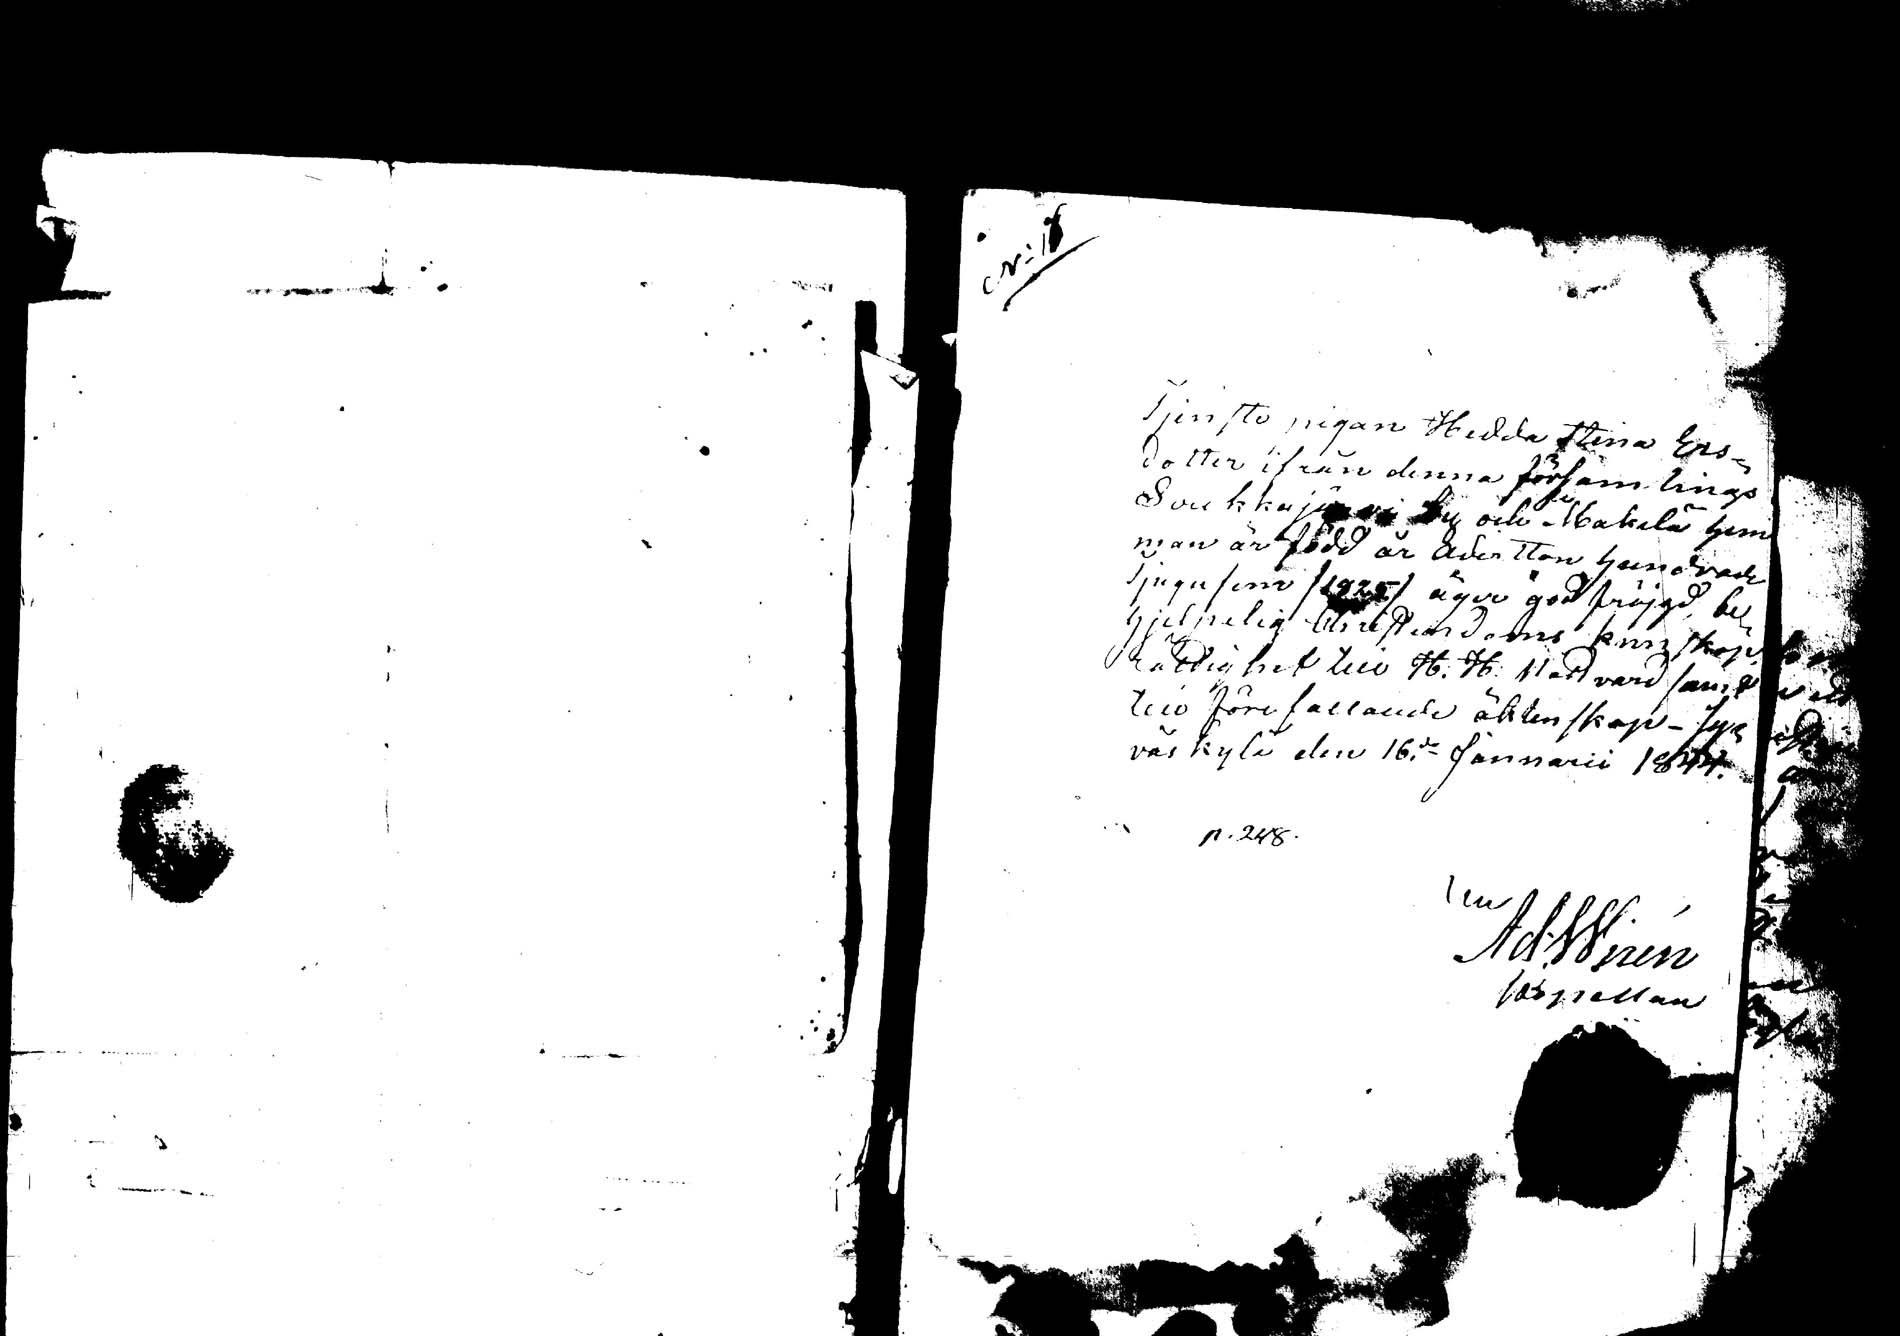 N:18
Tjenste pigan Hedda Stina Ers=
dotter ifrån denna församlings
Soukkajärvi by och Mäkelä hem
man är född år Adertton hundrade
tjugufem /1825/ äger god fräjgd, be=
hjelpelig Christendoms kunskap,
rättighet till H. H. Nattvard samt
till förefallande äktenskap – Jy=
väskylä den 16.de Januarii 1844.
p. 248.
Ad. Wirén
Kapellan